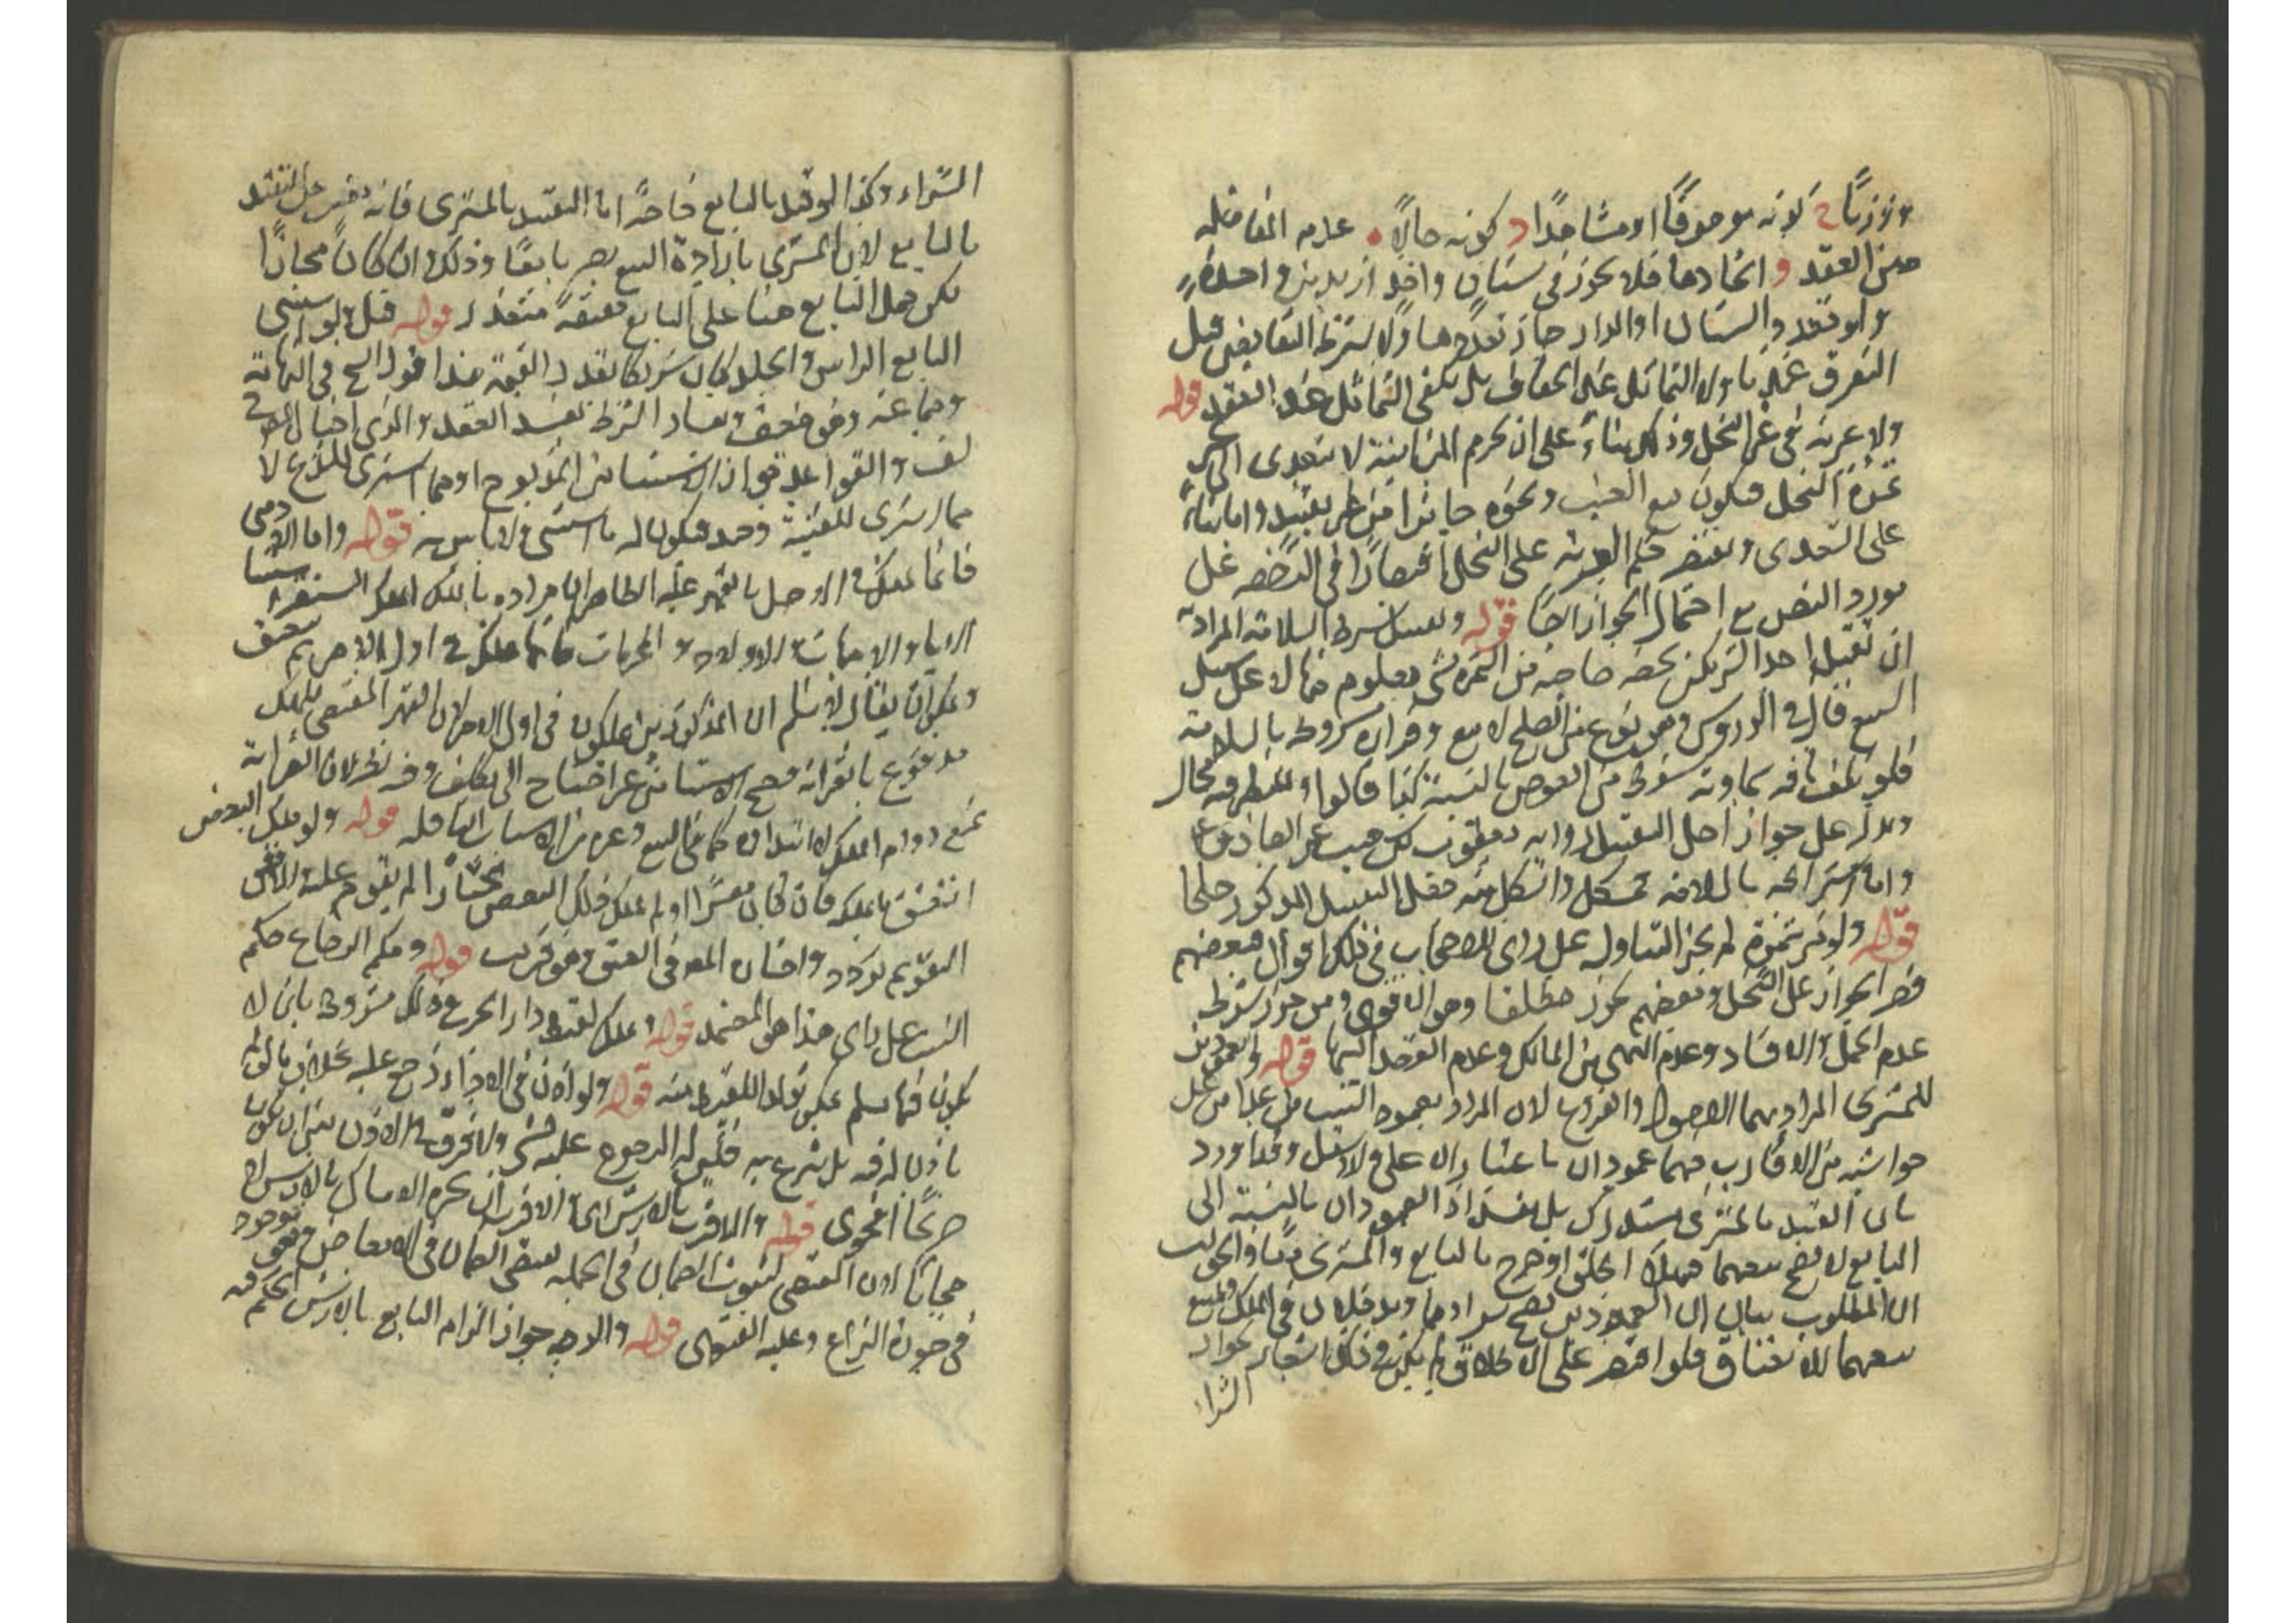 ووزنا ح كونه موصوفا او مشاهدا د كونه حالا ه عدم المفاضله
حين العقد و اتحادها فلا يجوز في بستان واحد ازيد من واحدة
ولو تعدد البستان او الدار جاز تعددها ولا يشترط التقابض قبل
التفرق عندنا ولا التماثل عند الجفاف بل يكفي التماثل عند العقد قوله
ولا عرية في غير النخل وذلك بناء على ان تحريم المزابنة لا يتعدى الى غير
ثمرة النخل فيكون بيع العنب ونحوه جايزا من غير تقييد واما بناء
على التعدى فيقتصر حكم العرية على النخل اقتصارا في الرخصه على
مورد النص مع احتمال الجواز ايضا قوله وتقبيل بشرط السلامه المراد به
ان يتقبل احد الشريكين بحصة صاحبه من الثمرة بشيء معلوم منها لا على سبيل
البيع قال في الدروس وهو نوع من الصلح لا بيع وقراره مشروط بالسلامة
فلو تلف بافه سماوية سقط من العوض بالنسبة كذا قالوا وللنظر فيه مجال
ويدل على جواز اصل التقبيل رواية يعقوب بن شعيب عن الصادق ع
واما اشتراطه بالسلامه فمشكل واشكل منه جعل التقبيل المذكور صلحا
قوله ولو مر بثمرة لم يجز التناول على راى للاصحاب في ذلك اقوال فبعضهم
قصر الجواز على النخل وبعضهم يجوز مطلقا وهو الاقوى ومن جوز شرط
عدم الحمل والافساد وعدم النهى من المالك وعدم القصد اليها قوله والعمودين
للمشترى المراد بهما الاصول والفروع لان المراد بعمود النسب ما علا من على
حواشيه من الاقارب فهما عمودان باعتبار الاعلى والاسفل وقد اورد
بان التقييد بالمشترى مستدرك بل مفسد اذ العمودان بالنسبة الى
البايع لا يصح بيعهما فهلا اطلق او صرح بالبايع والمشترى معا والجواب
ان المطلوب بيان ان العمودين يصح شراوهما ويدخلان في الملك ويمنع
بيعهما للانعتاق فلو اقتصر على الاطلاق لم يكن في ذلك اشعار بجواز
الشراء
الشراء وكذا لو قيد بالبايع خاصة اما التقييد بالمشترى فانه مغن عن التقييد
بالبايع لان المشترى بارادة البيع يصير بايعا وذلك وان كان مجازا
لكن حمل البايع هنا على البايع حقيقة متعذر قوله قيل ولو استثنى
البايع الراس والجلد كان شريكا بقدر القيمة هذا قول الشيخ في النهاية
وجماعة وهو ضعيف وفساد الشرط يفسد العقد والذي اختاره المص في
لف والقواعد جواز الاستثنا من المذبوح او مما اشترى للذبح لا
مما اشترى للتبقية وحده فيكون له ما استثنى ولا باس به قوله واما الادمى
فانما يملك في الاصل بالقهر عليه الظاهر ان مراده بالملك الملك المستقر
الابا والامهات والاولاد والمحرمات فانها تملك في اول الامر ثم تعتق
ويمكن ان يقال لا نسلم ان المذكورين يملكون في اول الامر لان القهر المقتضى للملك
مدفوع بالقرابة فصح الاستثنا من غير احتياج الى تكلف وفيه نظر لان القرابة
تمنع دوام الملك لا ابتداه كما في البيع وغيره من الاسباب الناقله قوله ولو ملك البعض
انعتق ما يملكه فان كان معسرا او لم يملك ذلك البعض مختارا لم يقوم عليه والا ففى
التقويم تردد واختار المص في العتق وهو قريب قوله وحكم الرضاع حكم
النسب على راى هذا هو المعتمد قوله ويملك لقيط دار الحرب وذلك مشروط بان لا
يكون فيها مسلم يمكن تولد اللقيط منه قوله ولو اذن في الاداء رجع عليه بخلاف ما لو لم
ياذن له فيه بل تبرع به فليس له الرجوع عليه بشىء ولا فرق في الاذن بين ان يكون
صريحا او فحوى قوله والاقرب بالارش اى الاقرب انه يجبره الامساك بالارش او
مجانا لان المقتضى لثبوت الضمان في الجمله يقتضى الضمان في الابعاض وهو موجود
في صورة النزاع وعليه الفتوى قوله والاوجه جواز الزام البايع بالارش الحكم فيه